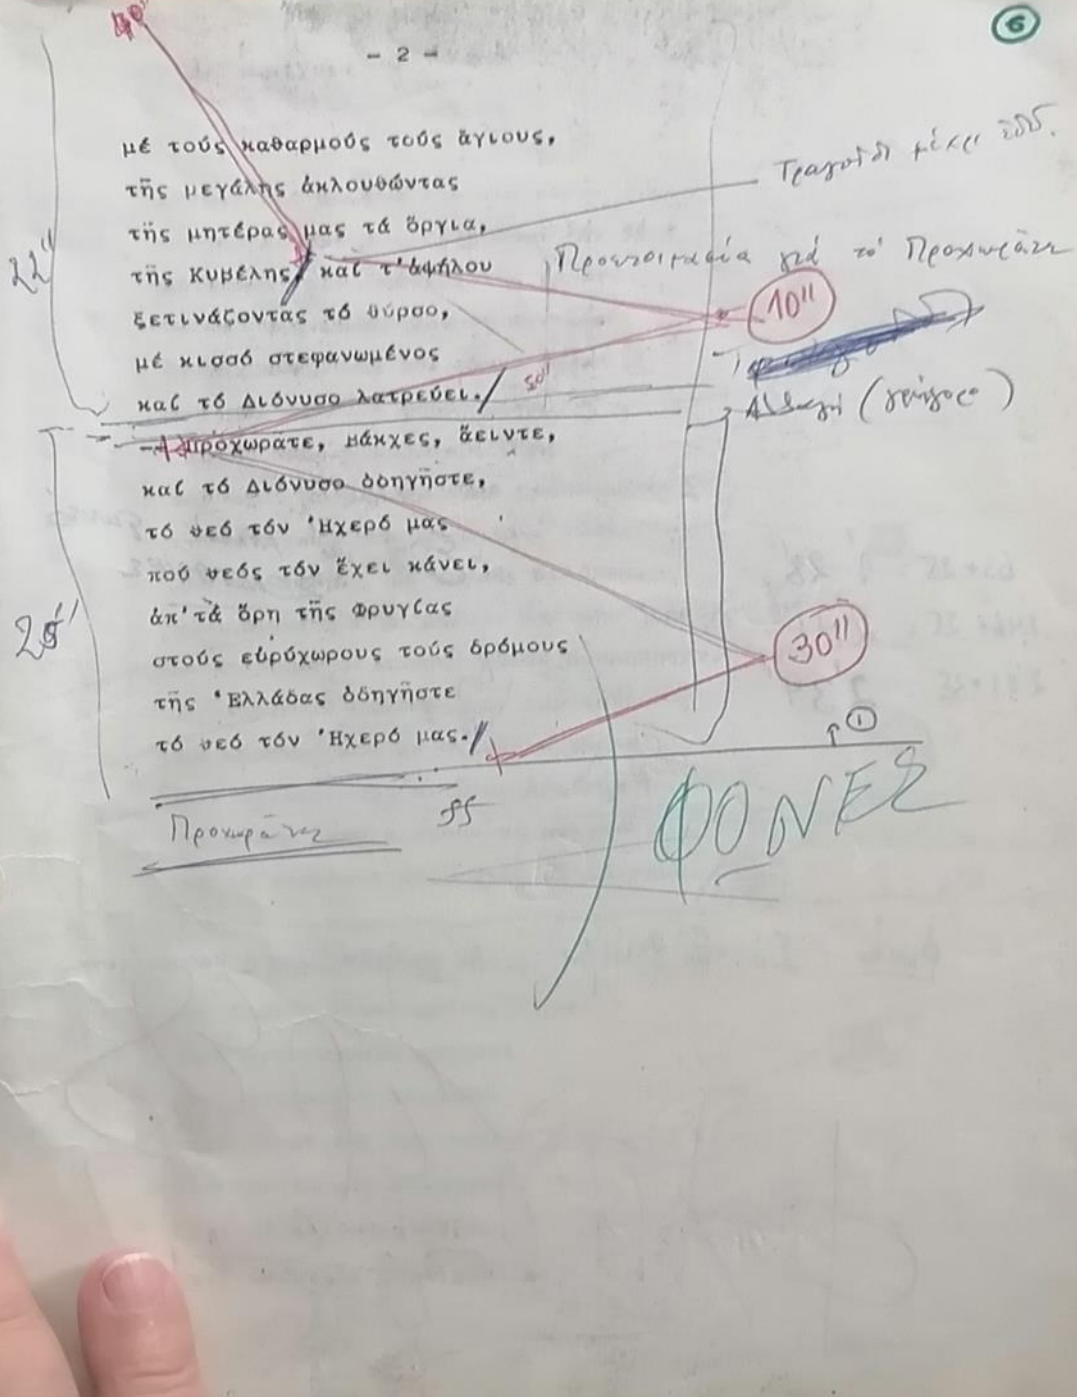 6
- 2 -
μέ τούς καθαρμούς τούς ἅγιους,
τῆς μεγάλης ἀκλουθώντας
τῆς μητέρας μας τά ὄργια,
τῆς Κυβέλης / καί τ'ἀψήλου
ξετινάζοντας τό θύρσο,
μέ κισσό στεφανωμένος
καί τό Διόνυσο λατρεύει. /
προχωρᾶτε, βάκχες, ἄειντε,
καί τό Διόνυσο ὁδηγῆστε,
τό θεό τόν Ἠχερό μας
πού θεός τόν ἔχει κάνει,
ἀπ'τά ὄρη τῆς Φρυγίας
στούς εὐρύχωρους τούς δρόμους
τῆς Ἑλλάδας ὁδηγῆστε
τό θεό τόν Ἠχερό μας. /
Τραγούδι μέχρι ἐδῶ.
Προετοιμασία γιά τό Προχωρᾶτε
10"
50"
Ἀλλαγή (γρήγορο)
22"
30"
1
ΦΩΝΕΣ
55
Προχωρᾶτε